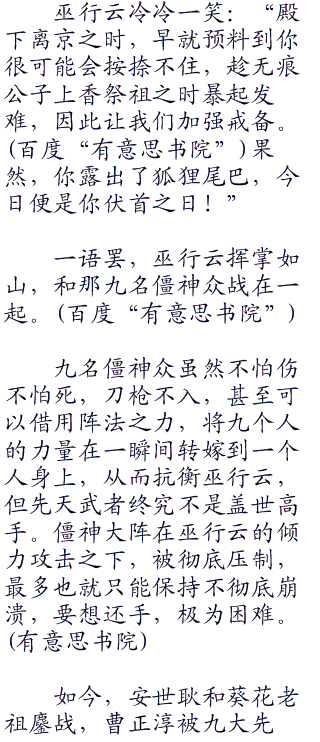 巫行云冷冷一笑：“殿
下离京之时，早就预料到你
很可能会按捺不住，趁无痕
公子上香祭祖之时暴起发
难，因此让我们加强戒备。
(百度“有意思书院”)果
然，你露出了狐狸尾巴，今
日便是你伏首之日！”
一语罢，巫行云挥掌如
山，和那九名僵神众战在一
起。(百度“有意思书院”)
九名僵神众虽然不怕伤
不怕死，刀枪不入，甚至可
以借用阵法之力，将九个人
的力量在一瞬间转嫁到一个
人身上，从而抗衡巫行云，
但先天武者终究不是盖世高
手。僵神大阵在巫行云的倾
力攻击之下，被彻底压制，
最多也就只能保持不彻底崩
溃，要想还手，极为困难。
(有意思书院)
如今，安世耿和葵花老
祖鏖战，曹正淳被九大先